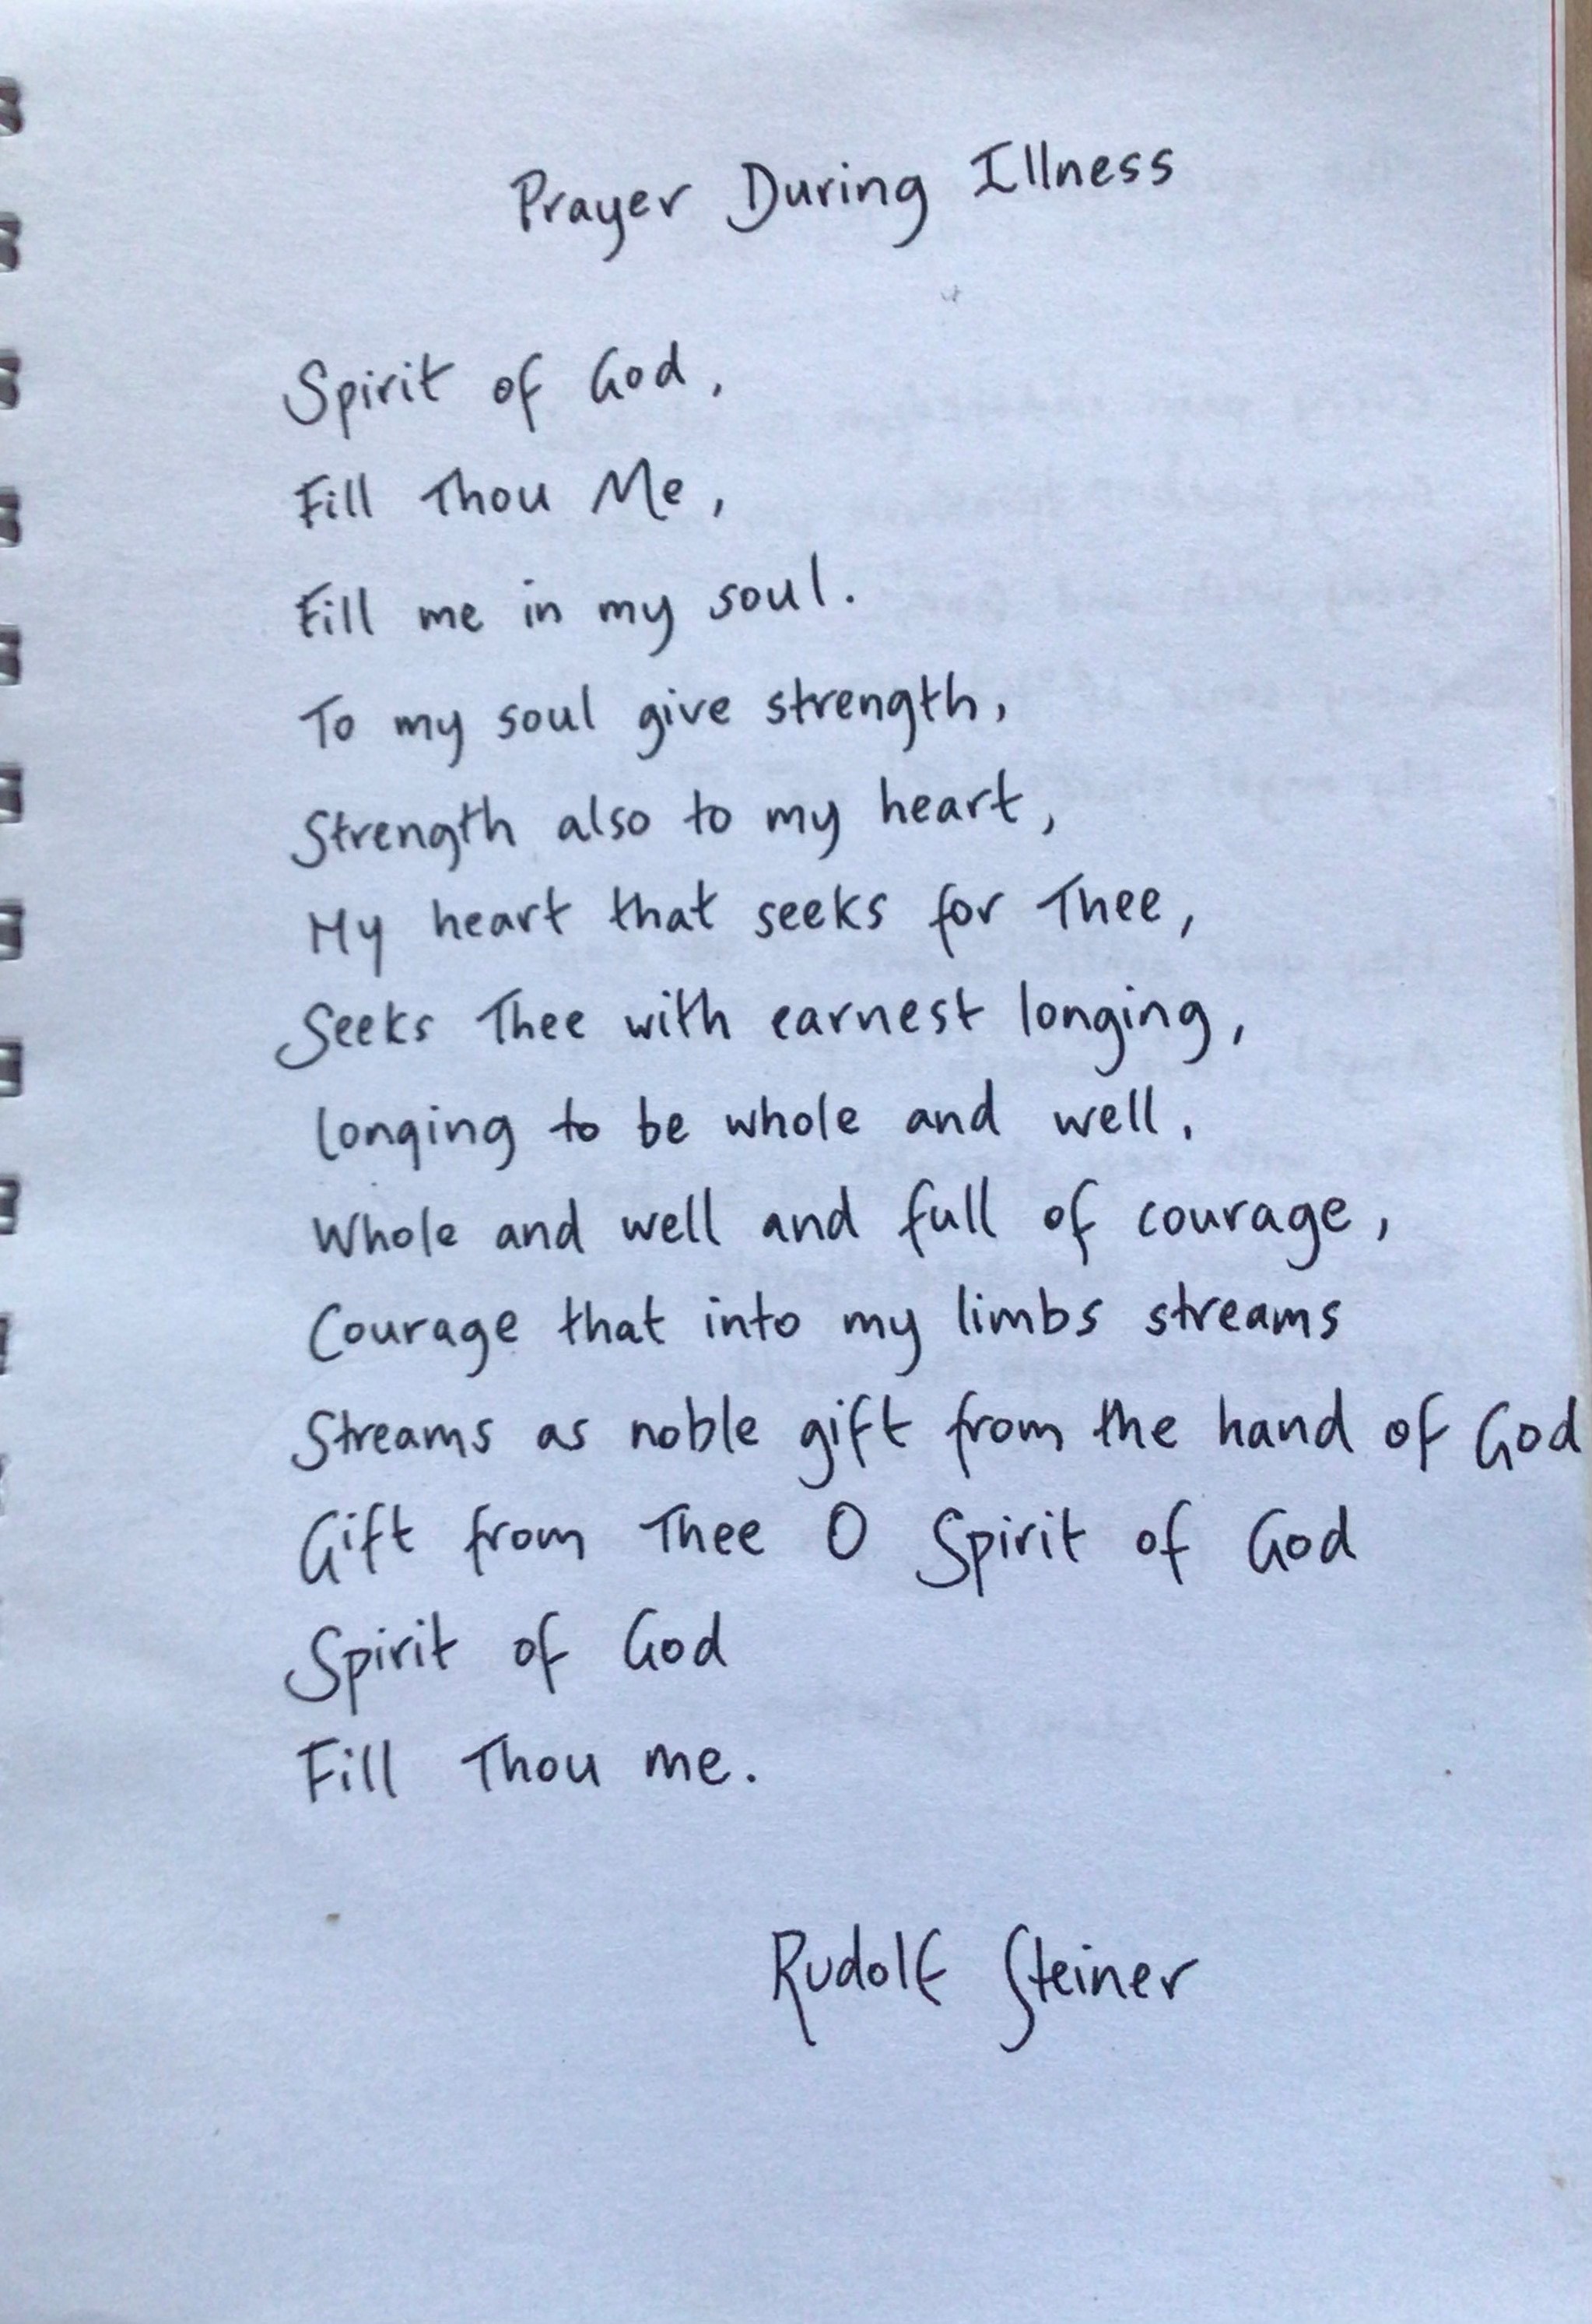 Prayer During Illness
Spirit of God,
Fill Thou Me,
Fill me in my soul.
To my soul give strength,
Strength also to my heart,
My heart that seeks for Thee,
Seeks Thee with earnest longing,
longing to be whole and well,
Whole and well and full of courage,
Courage that into my limbs streams
Streams as noble gift from the hand of God
Gift from Thee O Spirit of God
Spirit of God
Fill Thou me.
Rudolf Steiner